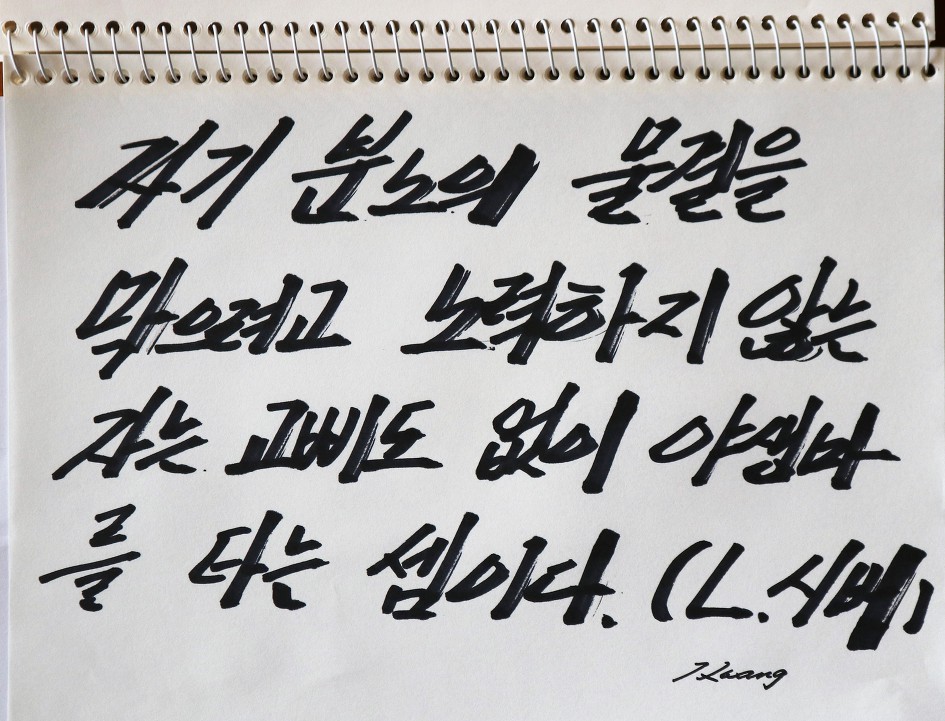 자기 분노의 물결을
막으려고 노력하지 않는
자는 고삐도 없이 야생마
를 타는 셈이다. (L.시베)
Hwang